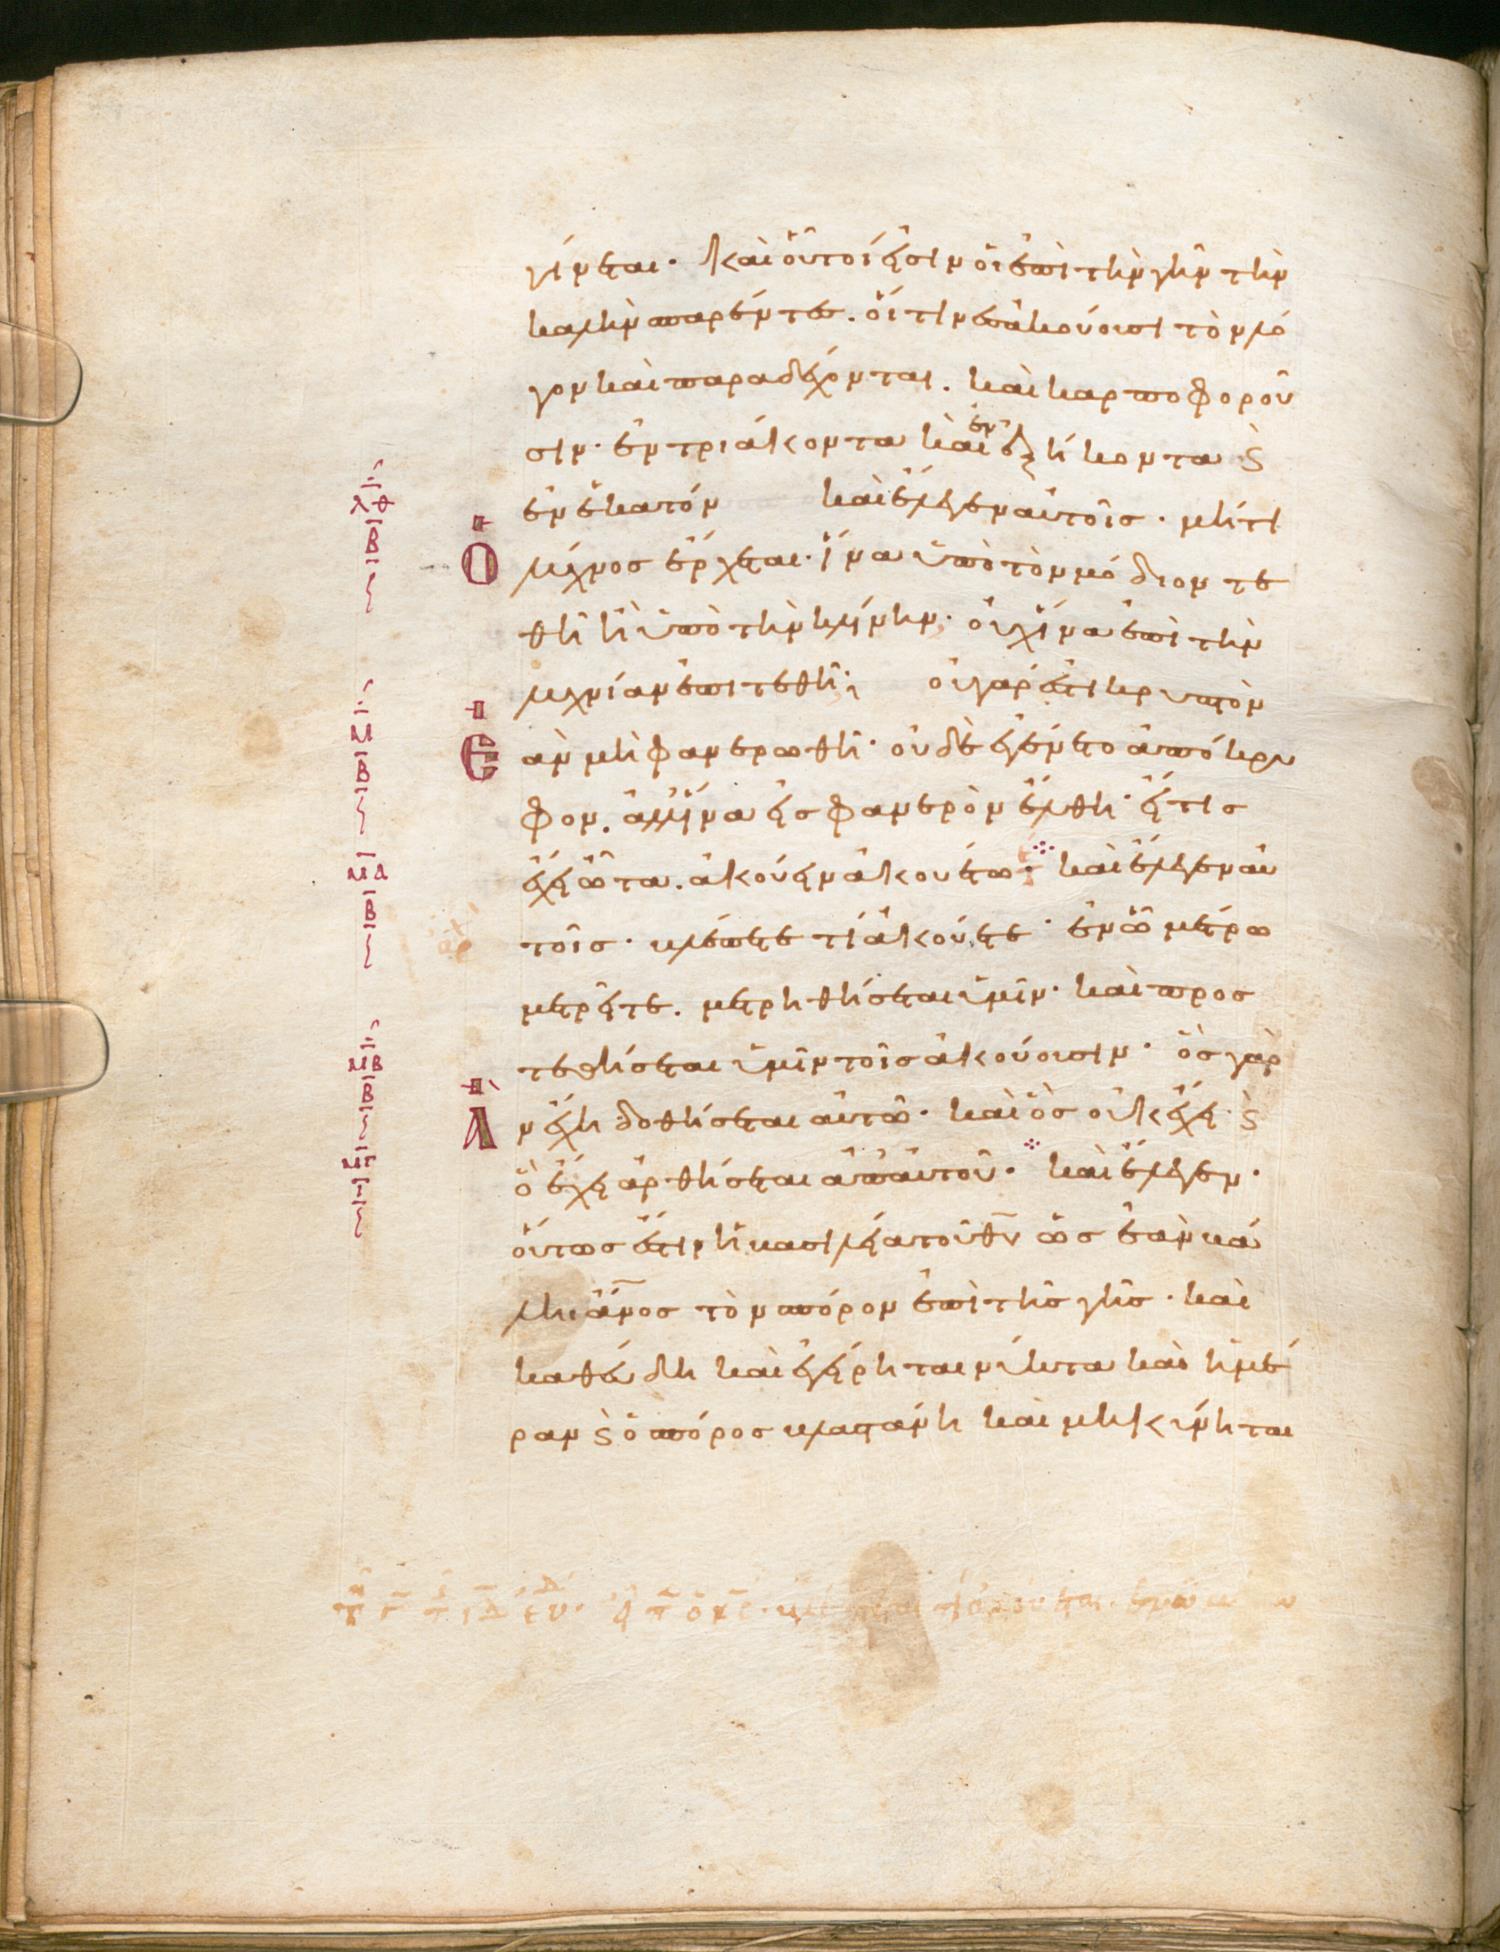 γίνεται· καὶ οὗτοί εἰσιν οἱ ἐπὶ τὴν γῆν τὴν
καλὴν σπαρέντες. οἵτινες ἀκούουσι τὸν λό
γον καὶ παραδέχονται. καὶ καρποφοροῦ
σιν· ἐν τριάκοντα καὶ ἐν ἑξήκοντα ϛ
ΛΘ
Β
ἐν ἑκατόν καὶ ἔλεγεν αὐτοῖς· μήτι
Ὁ λύχνος ἔρχεται· ἵνα ὑπὸ τὸν μόδιον τε
θῆ ἢ ὑπὸ τὴν κλίνην· οὐχ ἵνα ἐπὶ τὴν
λυχνίαν ἐπιτεθῆ; οὐ γάρ ἐστι κρυπτὸν
Μ
Β
Ἐὰν μὴ φανερωθῆ· οὐδὲ ἐγένετο ἀπόκρυ
φον. ἀλλ' ἵνα εἰς φανερὸν ἔλθη· εἴ τις
ΜΑ
Β
ἔχει ὦτα. ἀκούειν ἀκουέτω· καὶ ἔλεγεν αὐ
τοῖς· βλέπετε τί ἀκούετε· ἐν ὧ μέτρω
μετρεῖτε. μετρηθήσεται ὑμῖν· καὶ προσ
τεθήσεται ὑμῖν τοῖς ἀκούουσιν· ὃς γὰρ
ΜΒ
Β
Ἂν ἔχη δοθήσεται αὐτῶ· καὶ ὃς οὐκ ἔχει ϛ
ὃ ἔχει ἀρθήσεται ἀπ' αὐτοῦ· καὶ ἔλεγεν·
ΜΓ
Ι
οὕτως ἐστὶν ἡ βασιλεία τοῦ θυ ὡς ἐὰν βά
λη ἄνος τὸν σπόρον ἐπὶ τῆς γῆς· καὶ
καθεύδη καὶ ἐγείρηται νύκτα καὶ ἡμέ
ραν ϛ ὁ σπόρος βλαστάνη καὶ μηκύνηται